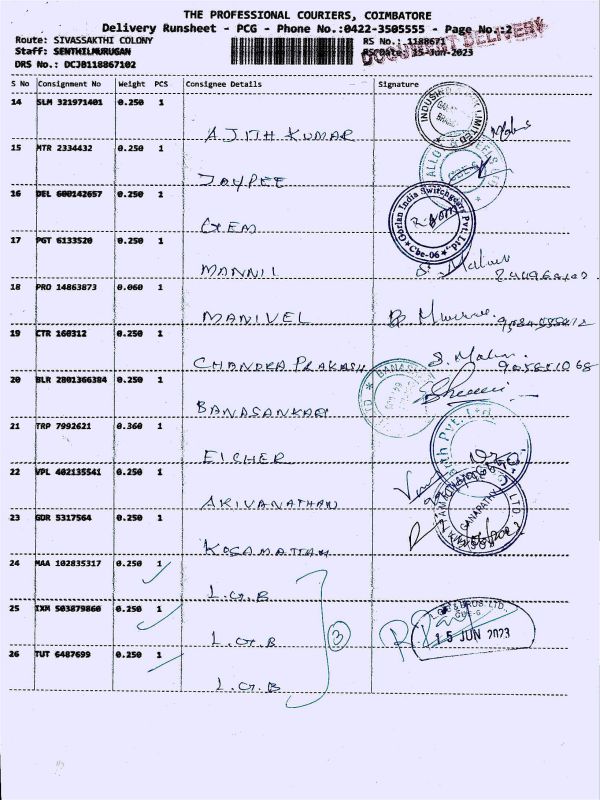 THE PROFESSIONAL COURIERS, COIMBATORE
Delivery Runsheet - PCG - Phone No.:0422-3505555 - Page No.:2
Route: SIVASSAKTHI COLONY RS No.: 1188671
Staff: SENTHILMURUGAN RS Date: 15-Jun-2023
DOCUMENT DELIVERY
DRS No.: DCJB118867102
S No Consignment No Weight PCS Consignee Details Signature
14 SLM 321971401 0.250 1 AJITH KUMAR
15 MTR 2334432 0.250 1 JAYPEE
16 DEL 600142657 0.250 1 GEM
Gorian India Switchgears Pvt. Ltd. Cbe-06
17 PGT 6133520 0.250 1 MANNII
18 PRO 14863873 0.060 1 MANIVEL
19 CTR 160312 0.250 1 CHANDRA PRAKASH
20 BLR 2801366384 0.250 1 BANASANKARI
21 TRP 7992621 0.360 1 EICHER
22 VPL 402135541 0.250 1 ARIVANATHAN
GANAPATHY
23 GDR 5317564 0.250 1 KOSAMATTAM
24 MAA 102835317 0.250 1 L.G.B
25 IXM 503879860 0.250 1 L.G.B
3
15 JUN 2023
26 TUT 6487699 0.250 1 L.G.B